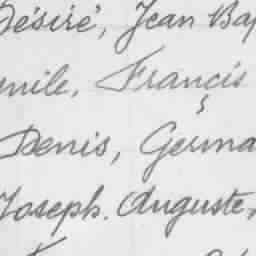 Désiré, Jean Bap
mile, Francis
Denis, Germa
Joseph. Auguste,